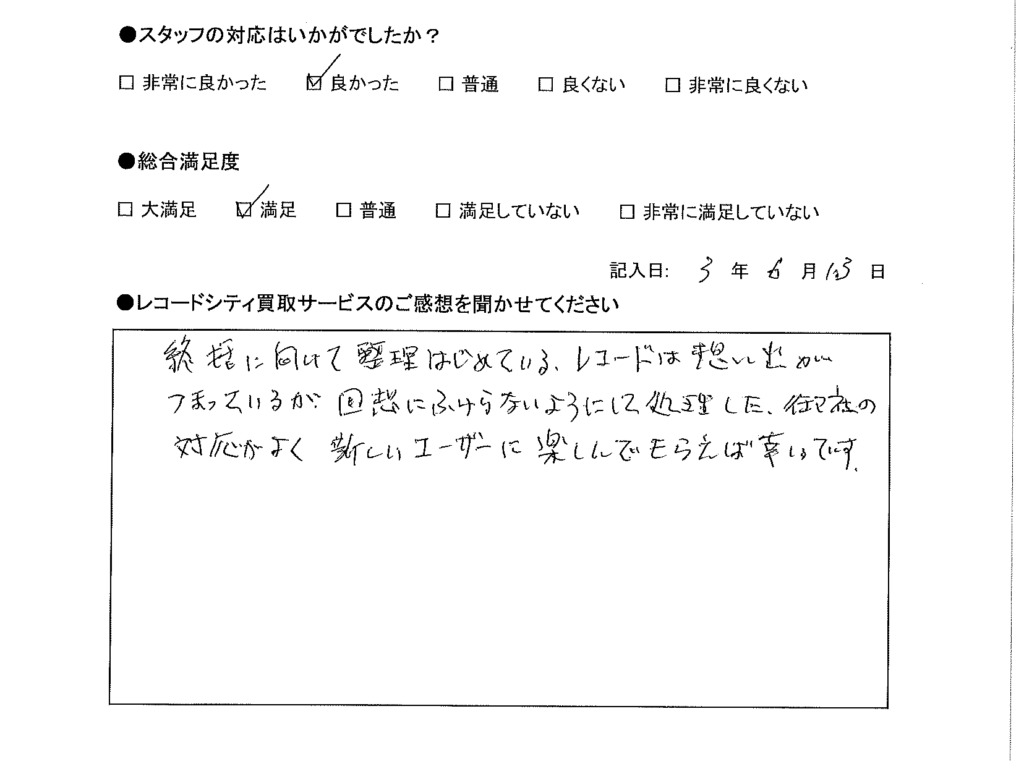 ●スタッフの対応はいかがでしたか？
□ 非常に良かった ☑ 良かった □ 普通 □ 良くない □ 非常に良くない
●総合満足度
□ 大満足 ☑ 満足 □ 普通 □ 満足していない □ 非常に満足していない
記入日: 3 年 6 月 13 日
●レコードシティ買取サービスのご感想を聞かせてください
終括に向けて整理はじめている、レコードは想い出が
つまっているが、回想にふけらないようにして処理した、御社の
対応がよく 新しいユーザーに楽しんでもらえば幸いです。